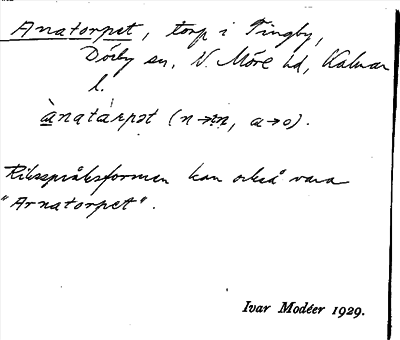 Anatorpet, torp i Tingby,
Dörby sn, N. Möre hd, Kalmar
l.
ànatàrpət (n→rn, a→o).
Riksspråksformen kan också vara
"Arnatorpet".
Ivar Modéer 1929.